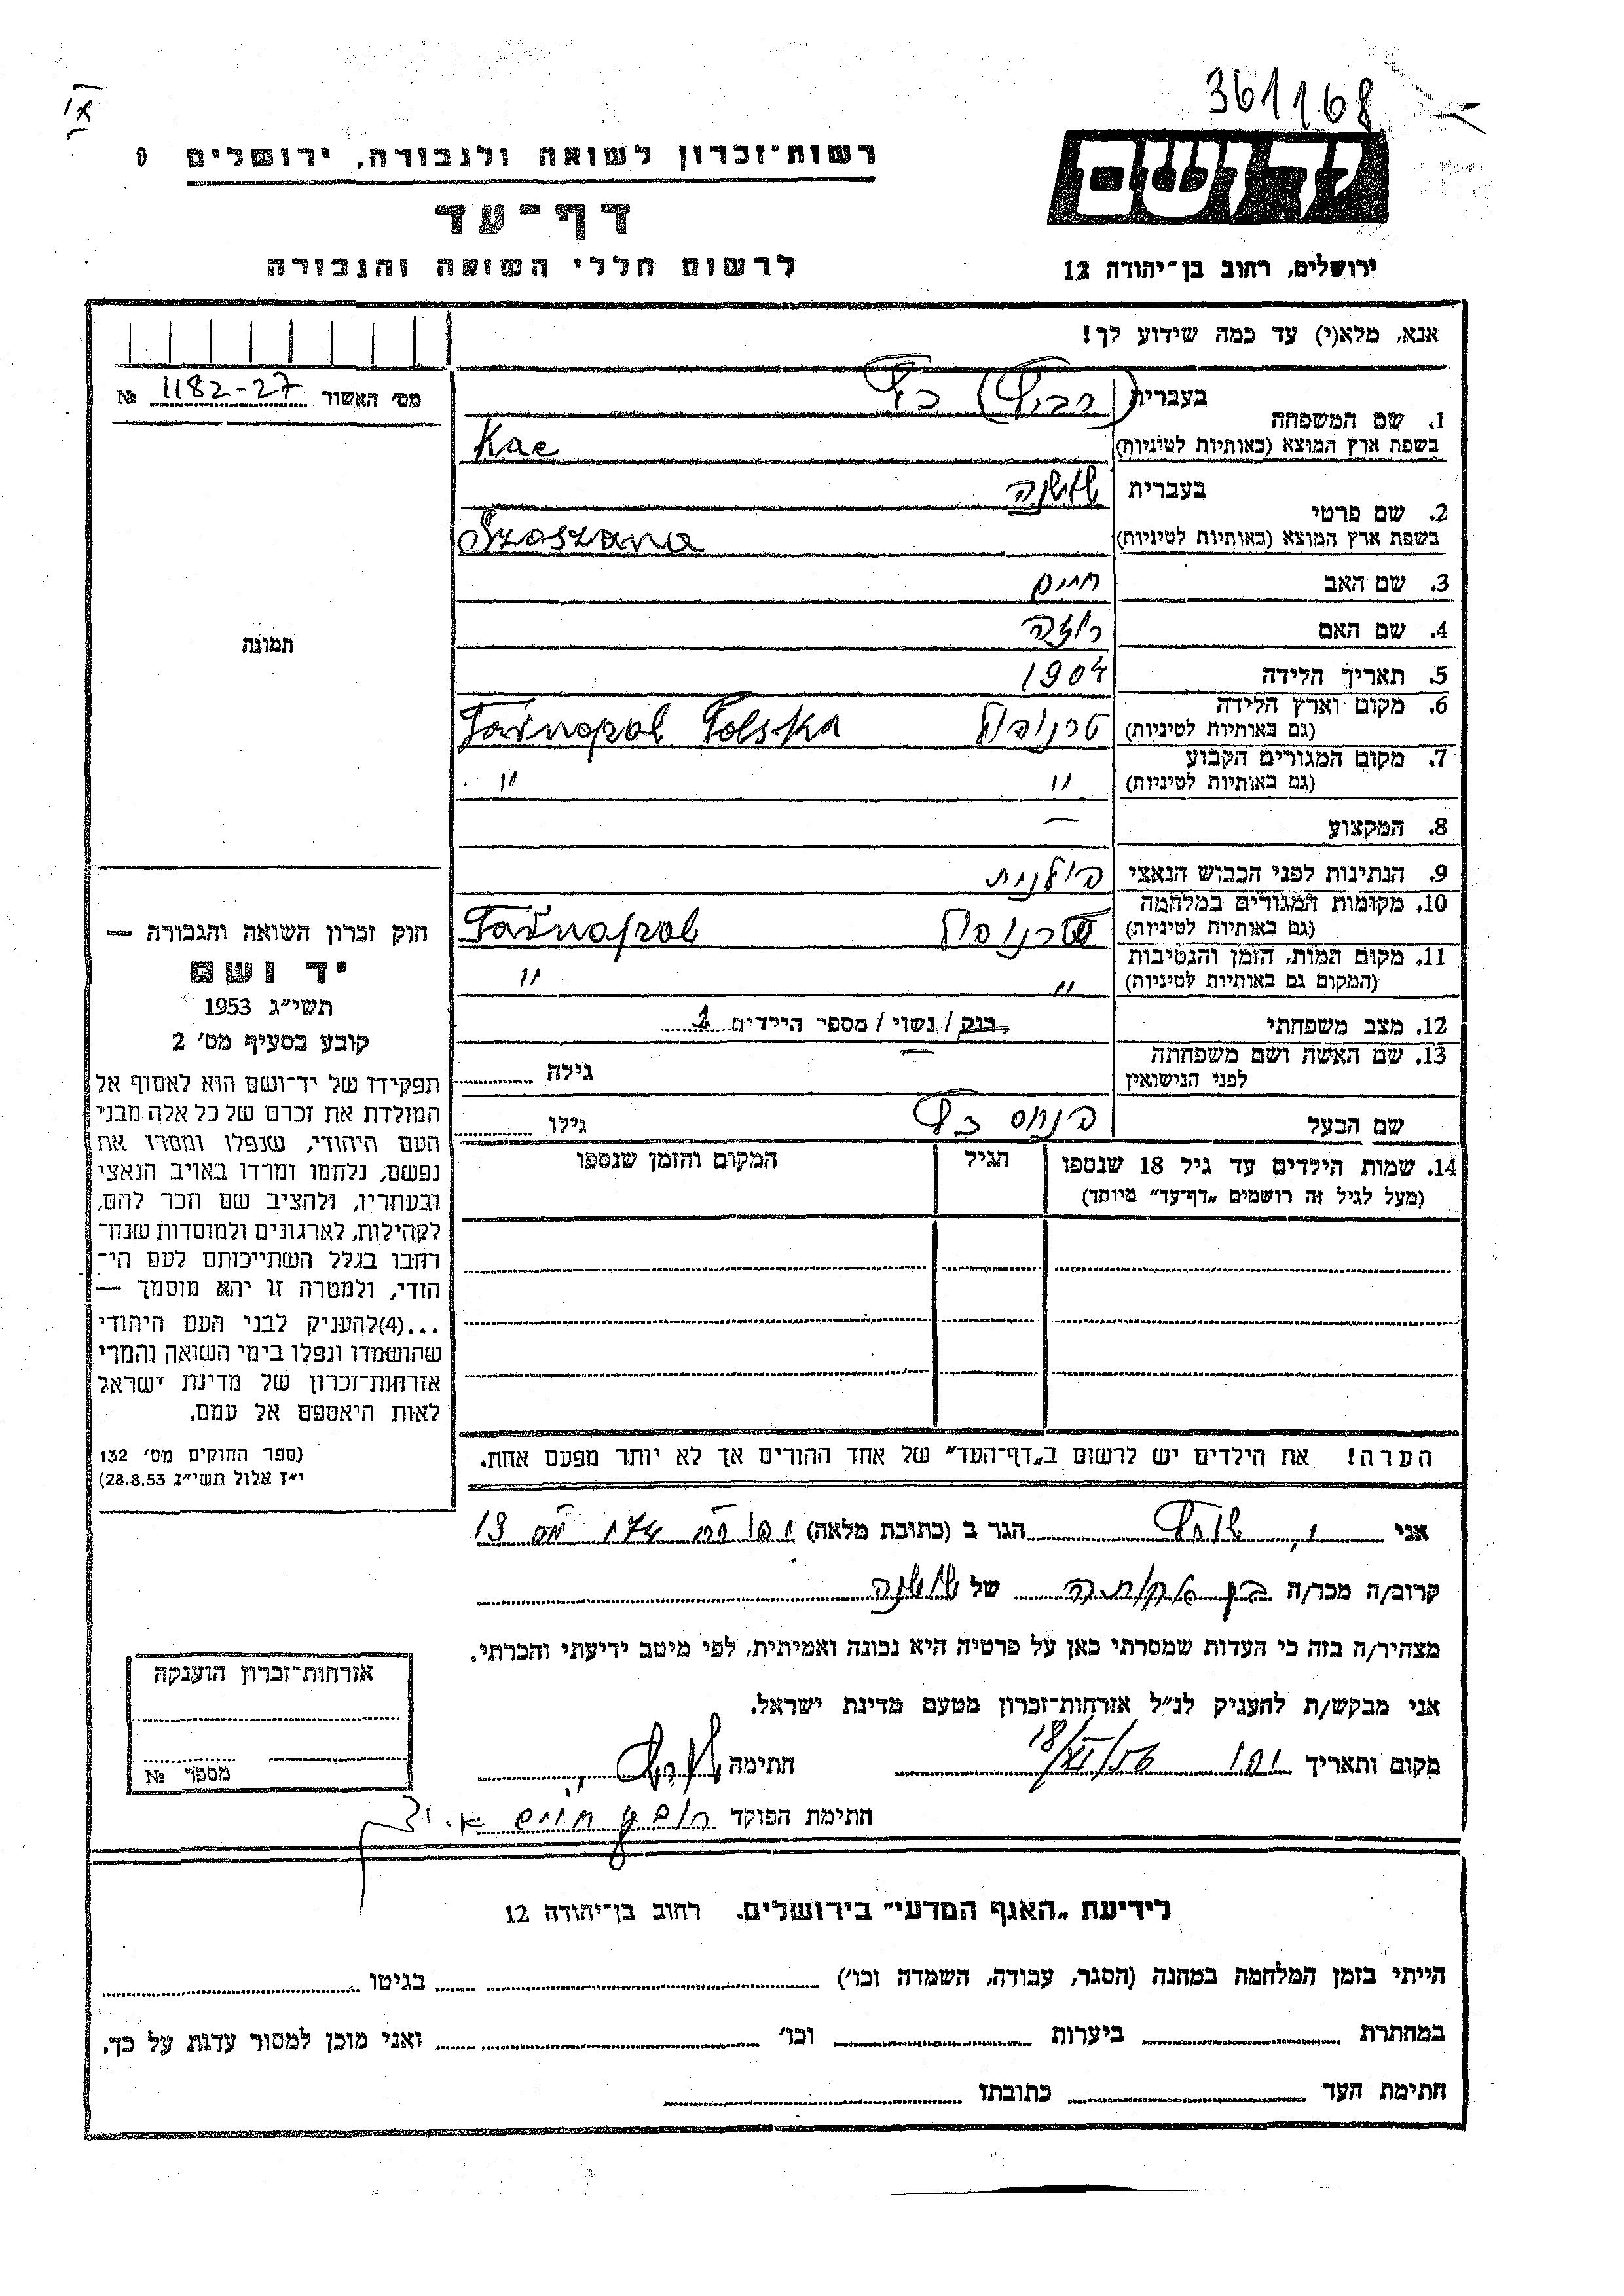 361168
רשות־זכרון לשואה ולגבורה, ירושלים
יד ושם
דף־עד
לרשום חללי השואה והגבורה
ירושלים, רחוב בן־יהודה 12
אנא, מלא(י) עד כמה שידוע לך!
מס׳ האשור 1182-27 №
1. שם המשפחה
בעברית כץ
בשפת ארץ המוצא (באותיות לטיניות) Kac
2. שם פרטי
בעברית שושנה
בשפת ארץ המוצא (באותיות לטיניות) Szoszana
3. שם האב חיים
4. שם האם רוזה
5. תאריך הלידה 1904
6. מקום וארץ הלידה
(גם באותיות לטיניות) טרנופול Tarnopol Polska
7. מקום המגורים הקבוע
(גם באותיות לטיניות) " "
8. המקצוע —
9. הנתינות לפני הכבוש הנאצי פולנית
10. מקומות המגורים במלחמה
(גם באותיות לטיניות) טרנופול Tarnopol
11. מקום המות, הזמן והנסיבות
(המקום גם באותיות לטיניות) " "
12. מצב משפחתי רוק / נשוי / מספר הילדים
13. שם האשה ושם משפחתה
לפני הנישואין — גילה
שם הבעל פנחס כץ גילו
14. שמות הילדים עד גיל 18 שנספו הגיל המקום והזמן שנספו
(מעל לגיל זה רושמים „דף־עד” מיוחד)
הערה! את הילדים יש לרשום ב„דף־העד” של אחד ההורים אך לא יותר מפעם אחת.
תמונה
חוק זכרון השואה והגבורה —
יד ושם
תשי״ג 1953
קובע בסעיף מס׳ 2
תפקידו של יד־ושם הוא לאסוף אל
המולדת את זכרם של כל אלה מבני
העם היהודי, שנפלו ומסרו את
נפשם, נלחמו ומרדו באויב הנאצי
ובעוזריו, ולהציב שם וזכר להם,
לקהילות, לארגונים ולמוסדות שנח־
רחבו בגלל השתייכותם לעם הי־
הודי, ולמטרה זו יהא מוסמך —
...(4)להעניק לבני העם היהודי
שהושמדו ונפלו בימי השואה והמרי
אזרחות־זכרון של מדינת ישראל
לאות היאספם אל עמם.
(ספר החוקים מס׳ 132
י״ז אלול תשי״ג 28.8.53)
אני הגר ב (כתובת מלאה)
קרוב/ה מכר/ה בן של שושנה
מצהיר/ה בזה כי העדות שמסרתי כאן על פרטיה היא נכונה ואמיתית, לפי מיטב ידיעתי והכרתי.
אני מבקש/ת להעניק לנ״ל אזרחות־זכרון מטעם מדינת ישראל.
מקום ותאריך יפו 18/XI/56 חתימה
חתימת הפוקד
אזרחות־זכרון הוענקה
מספר №
לידיעת „האגף המדעי” בירושלים. רחוב בן־יהודה 12
הייתי בזמן המלחמה במחנה (הסגר, עבודה, השמדה וכו׳) בגיטו
במחתרת ביערות וכו׳ ואני מוכן למסור עדות על כך.
חתימת העד כתובתו